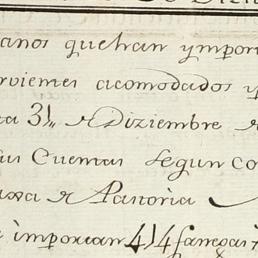 anos quehan ympor
rviemes acomodados y
a 31,, de Diziembre
us Cuentas Segun co
axa de Pastoria
ymporean 414 fanegas